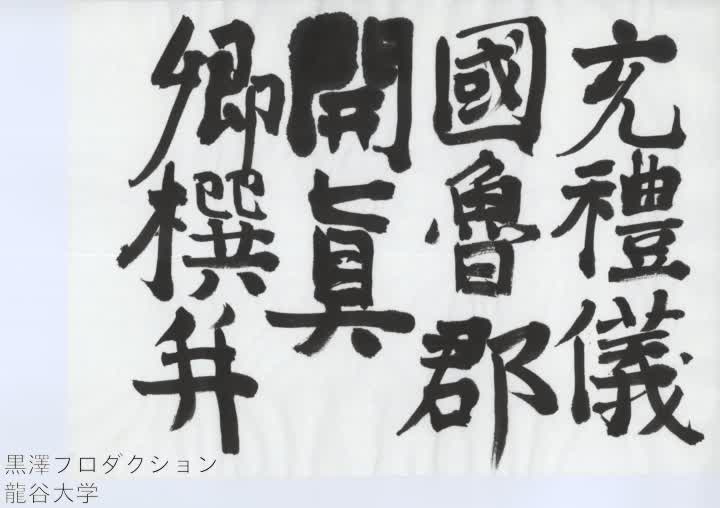 充禮儀
國魯郡
開眞
卿撰并
黒澤プロダクション
龍谷大学